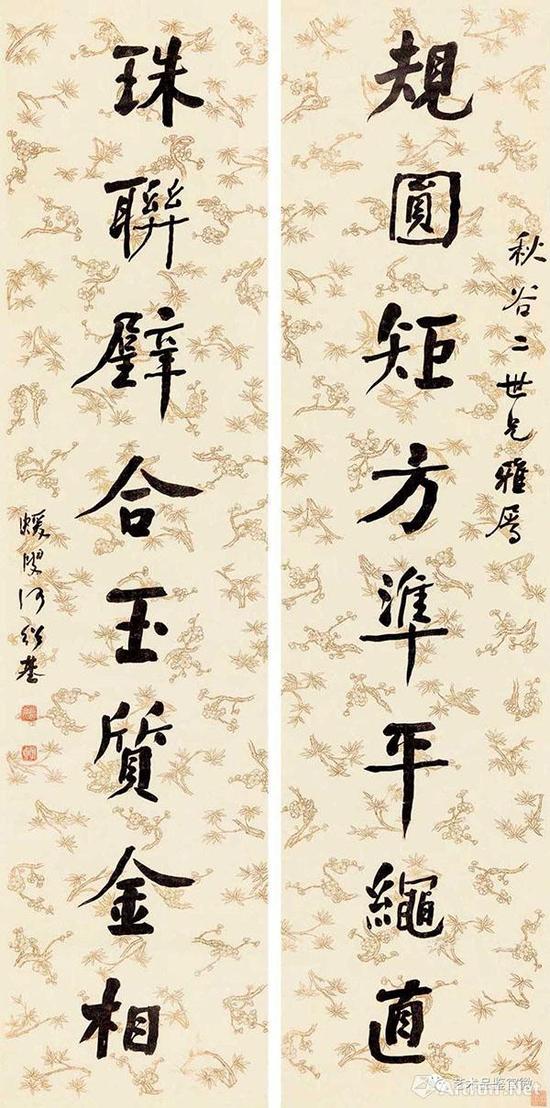 秋谷二世兄雅属
規圓矩方準平繩直
珠聯璧合玉質金相
蝯叟何紹基
艺术品鉴官微
Artron.Net